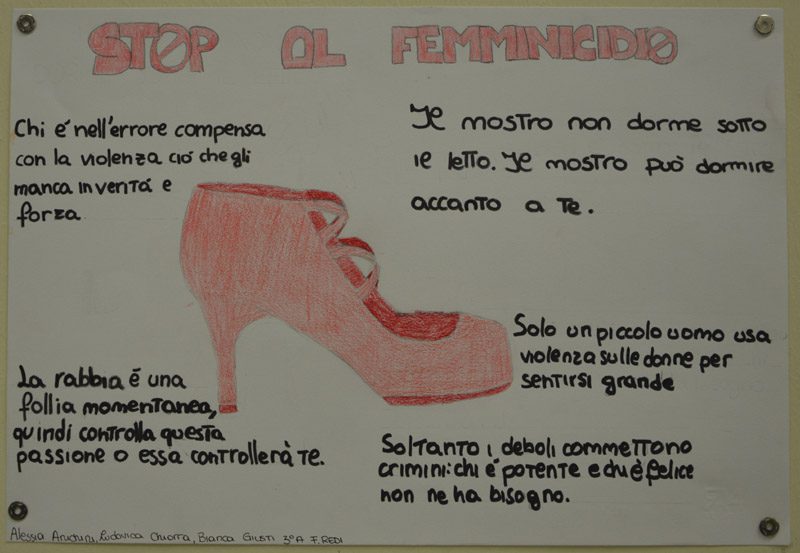 STOP AL FEMMINICIDIO
Chi é nell'errore compensa
con la violenza ció che gli
manca in veritá e
forza
Il mostro non dorme sotto
il letto. Il mostro puó dormire
accanto a te.
Solo un piccolo uomo usa
violenza sulle donne per
sentirsi grande
La rabbia é una
follia momentanea,
quindi controlla questa
passione o essa controllerà te.
Soltanto i deboli commettono
crimini: chi é potente e chi è felice
non ne ha bisogno.
Alessia Ludovica Chiorra, Bianca Giusti 3ºA F. REDI